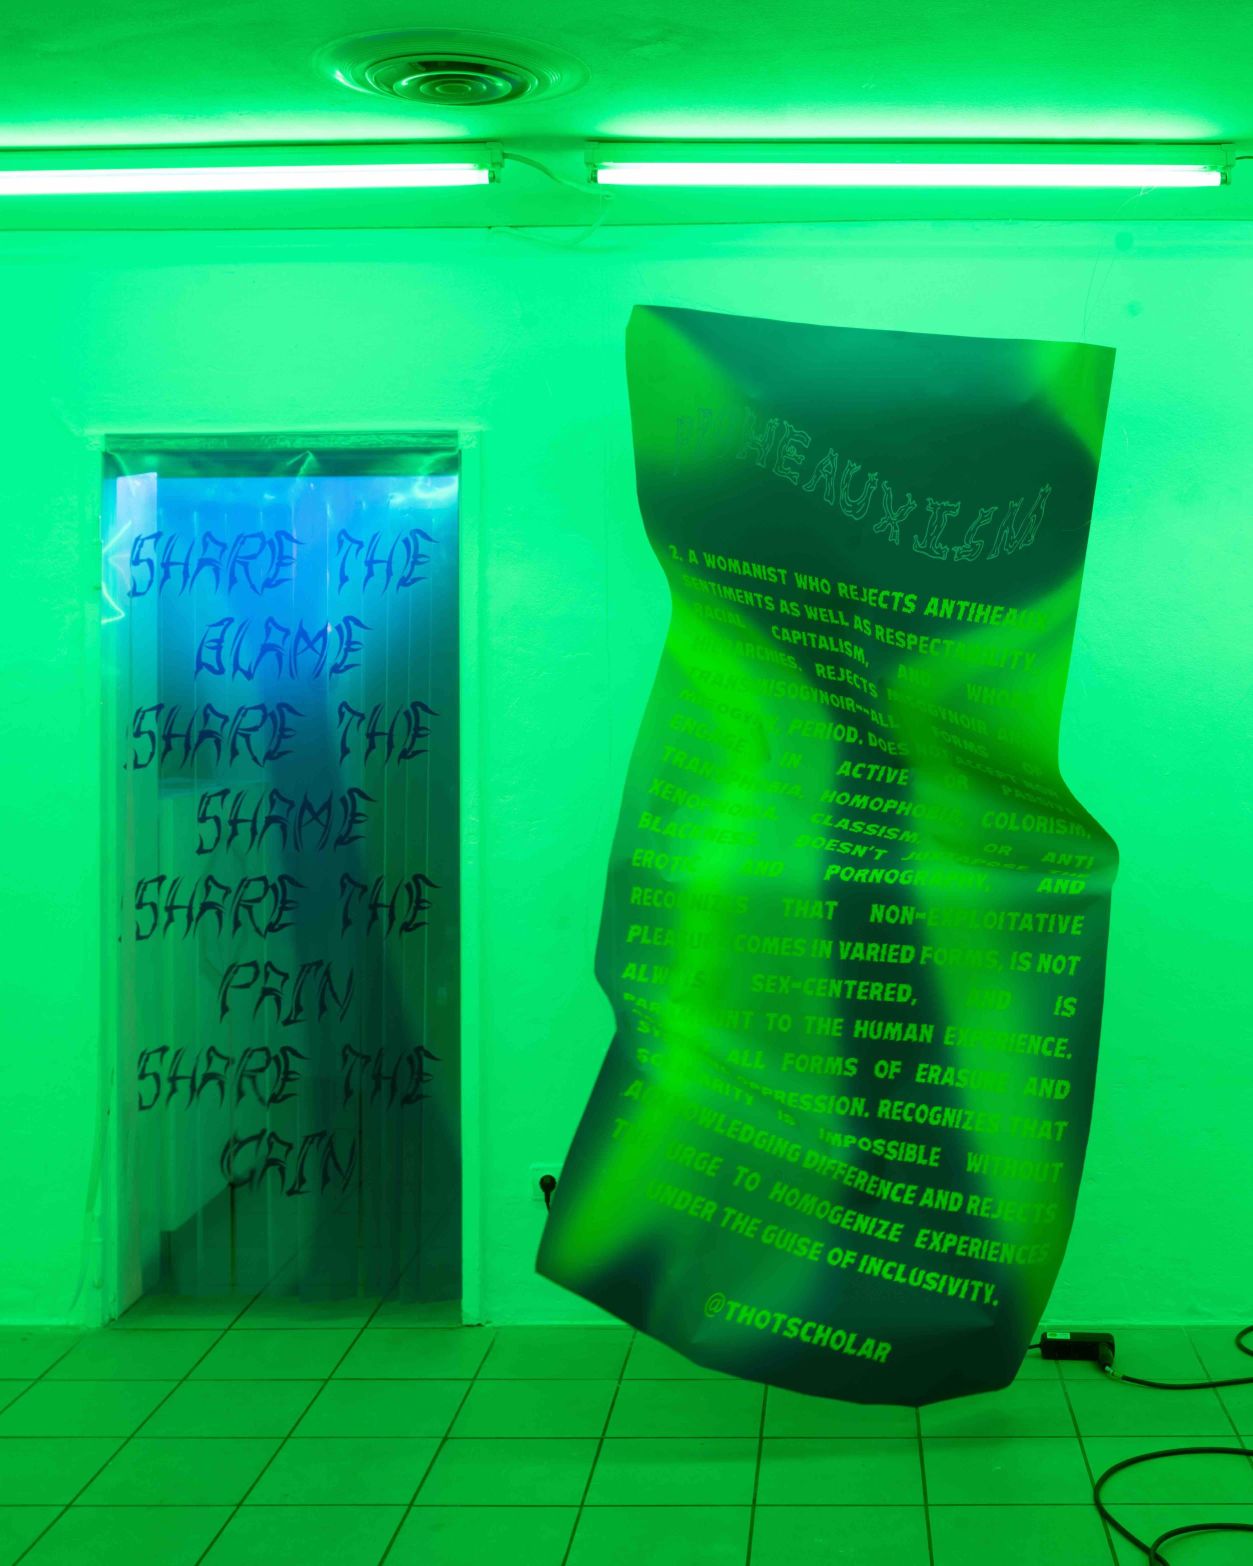 SHARE THE
BLAME
SHARE THE
SHAME
SHARE THE
PAIN
SHARE THE
GAIN
PROHEAUXISM
2. A WOMANIST WHO REJECTS ANTIHEAUX
SENTIMENTS AS WELL AS RESPECTABILITY,
RACIAL CAPITALISM, AND WHORE
HIERARCHIES, REJECTS MISOGYNOIR AND
TRANSMISOGYNOIR--ALL FORMS OF
MISOGYNY, PERIOD. DOES NOT ACCEPT NOR
ENGAGE IN ACTIVE OR PASSIVE
TRANSPHOBIA, HOMOPHOBIA, COLORISM,
XENOPHOBIA, CLASSISM, OR ANTI
BLACKNESS. DOESN'T JUXTAPOSE THE
EROTIC AND PORNOGRAPHY, AND
RECOGNIZES THAT NON-EXPLOITATIVE
PLEASURE COMES IN VARIED FORMS, IS NOT
ALWAYS SEX-CENTERED, AND IS
PARAMOUNT TO THE HUMAN EXPERIENCE.
ALL FORMS OF ERASURE AND
OPPRESSION. RECOGNIZES THAT
SOLIDARITY IS IMPOSSIBLE WITHOUT
ACKNOWLEDGING DIFFERENCE AND REJECTS
THE URGE TO HOMOGENIZE EXPERIENCES
UNDER THE GUISE OF INCLUSIVITY.
@THOTSCHOLAR